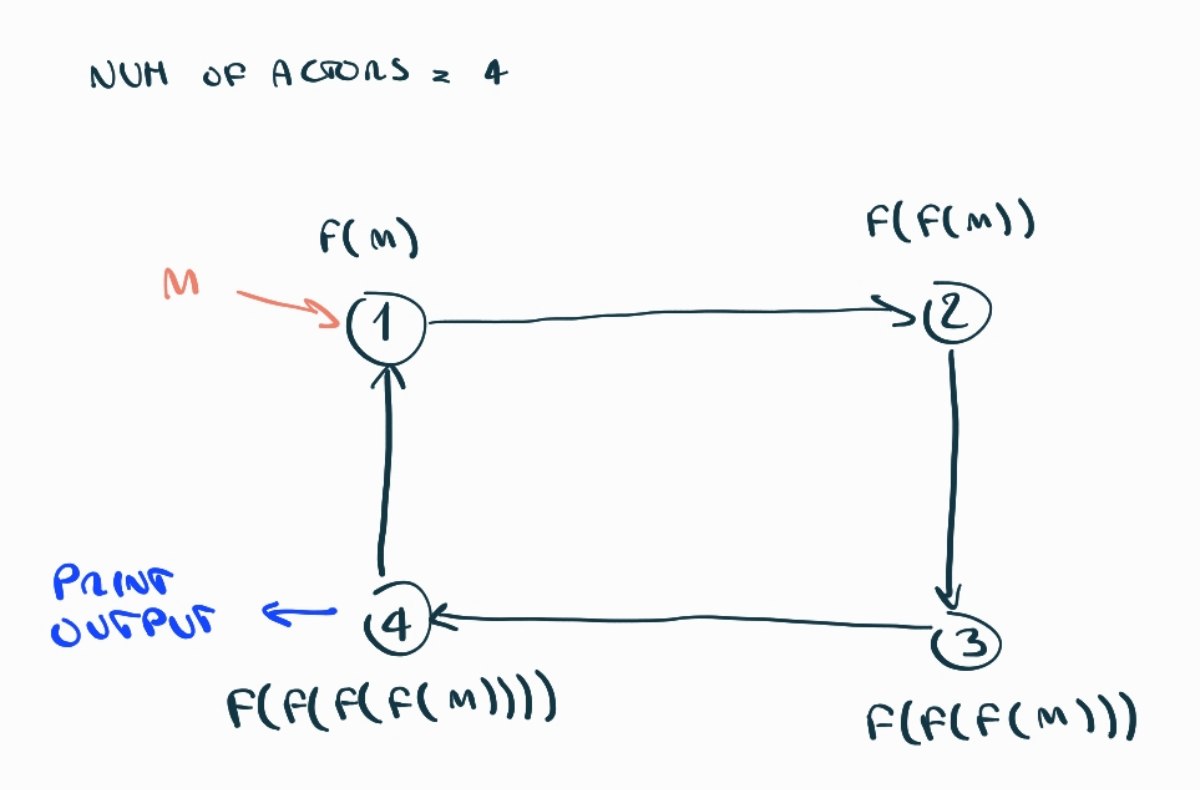 NUM OF ACTORS = 4
F(M)
F(F(M))
M
1
2
PRINT
OUTPUT
4
3
F(F(F(F(M))))
F(F(F(M)))